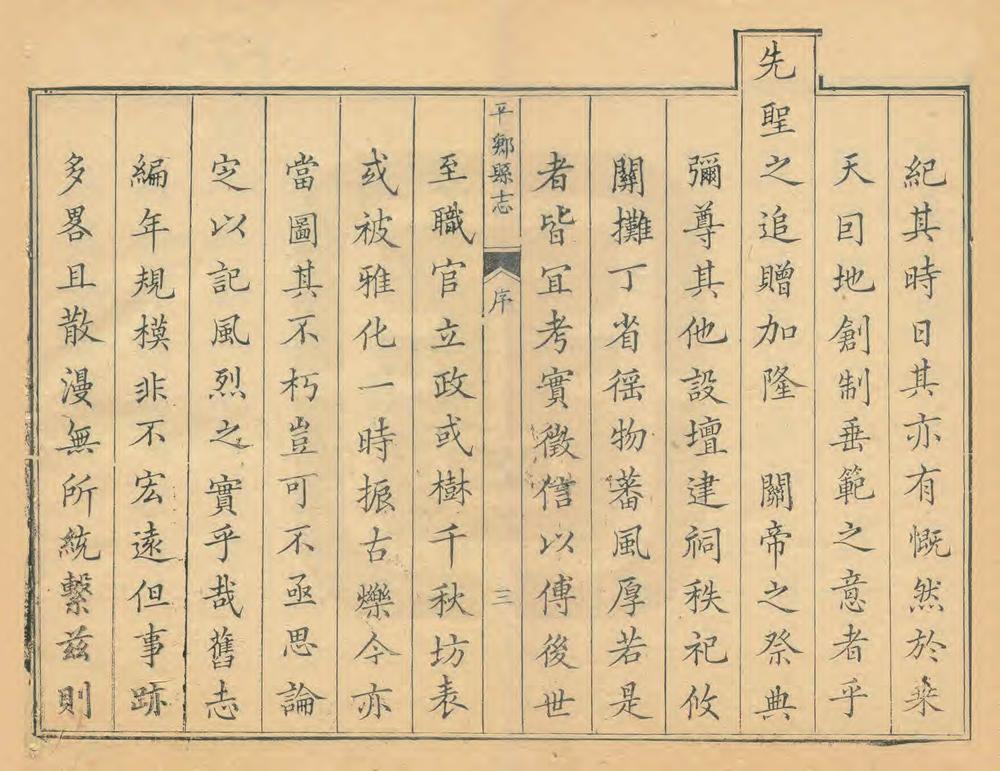 紀其時日其亦有慨然於乘
天因地創制垂範之意者乎
先聖之追贈加隆　關帝之祭典
彌尊其他設壇建祠秩祀攸
關攤丁省徭物蕃風厚若是
者皆冝考實徵信以傳後世
平鄉縣志
序
三
至職官立政或樹千秋坊表
或被雅化一時振古爍今亦
當圖其不朽豈可不亟思論
定以記風烈之實乎哉舊志
編年規模非不宏遠但事跡
多畧且散漫無所統繫茲則